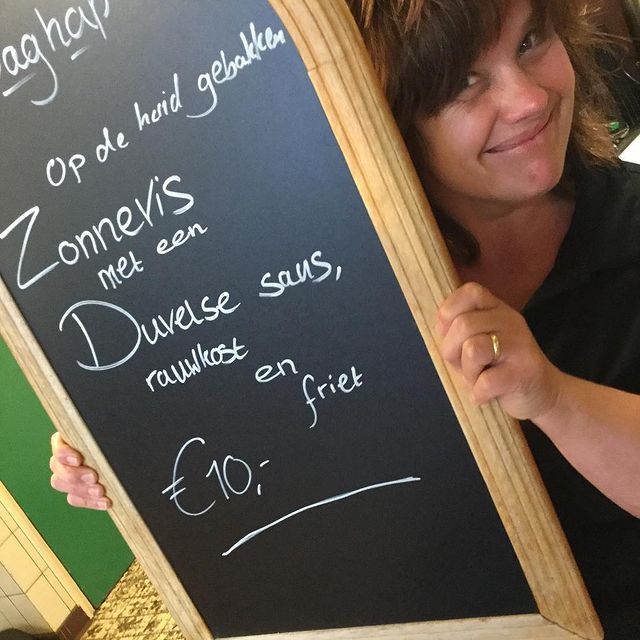 aghap
op de huid gebakken
Zonnevis
met een
Duvelse saus,
rauwkost
en
friet
€10,-